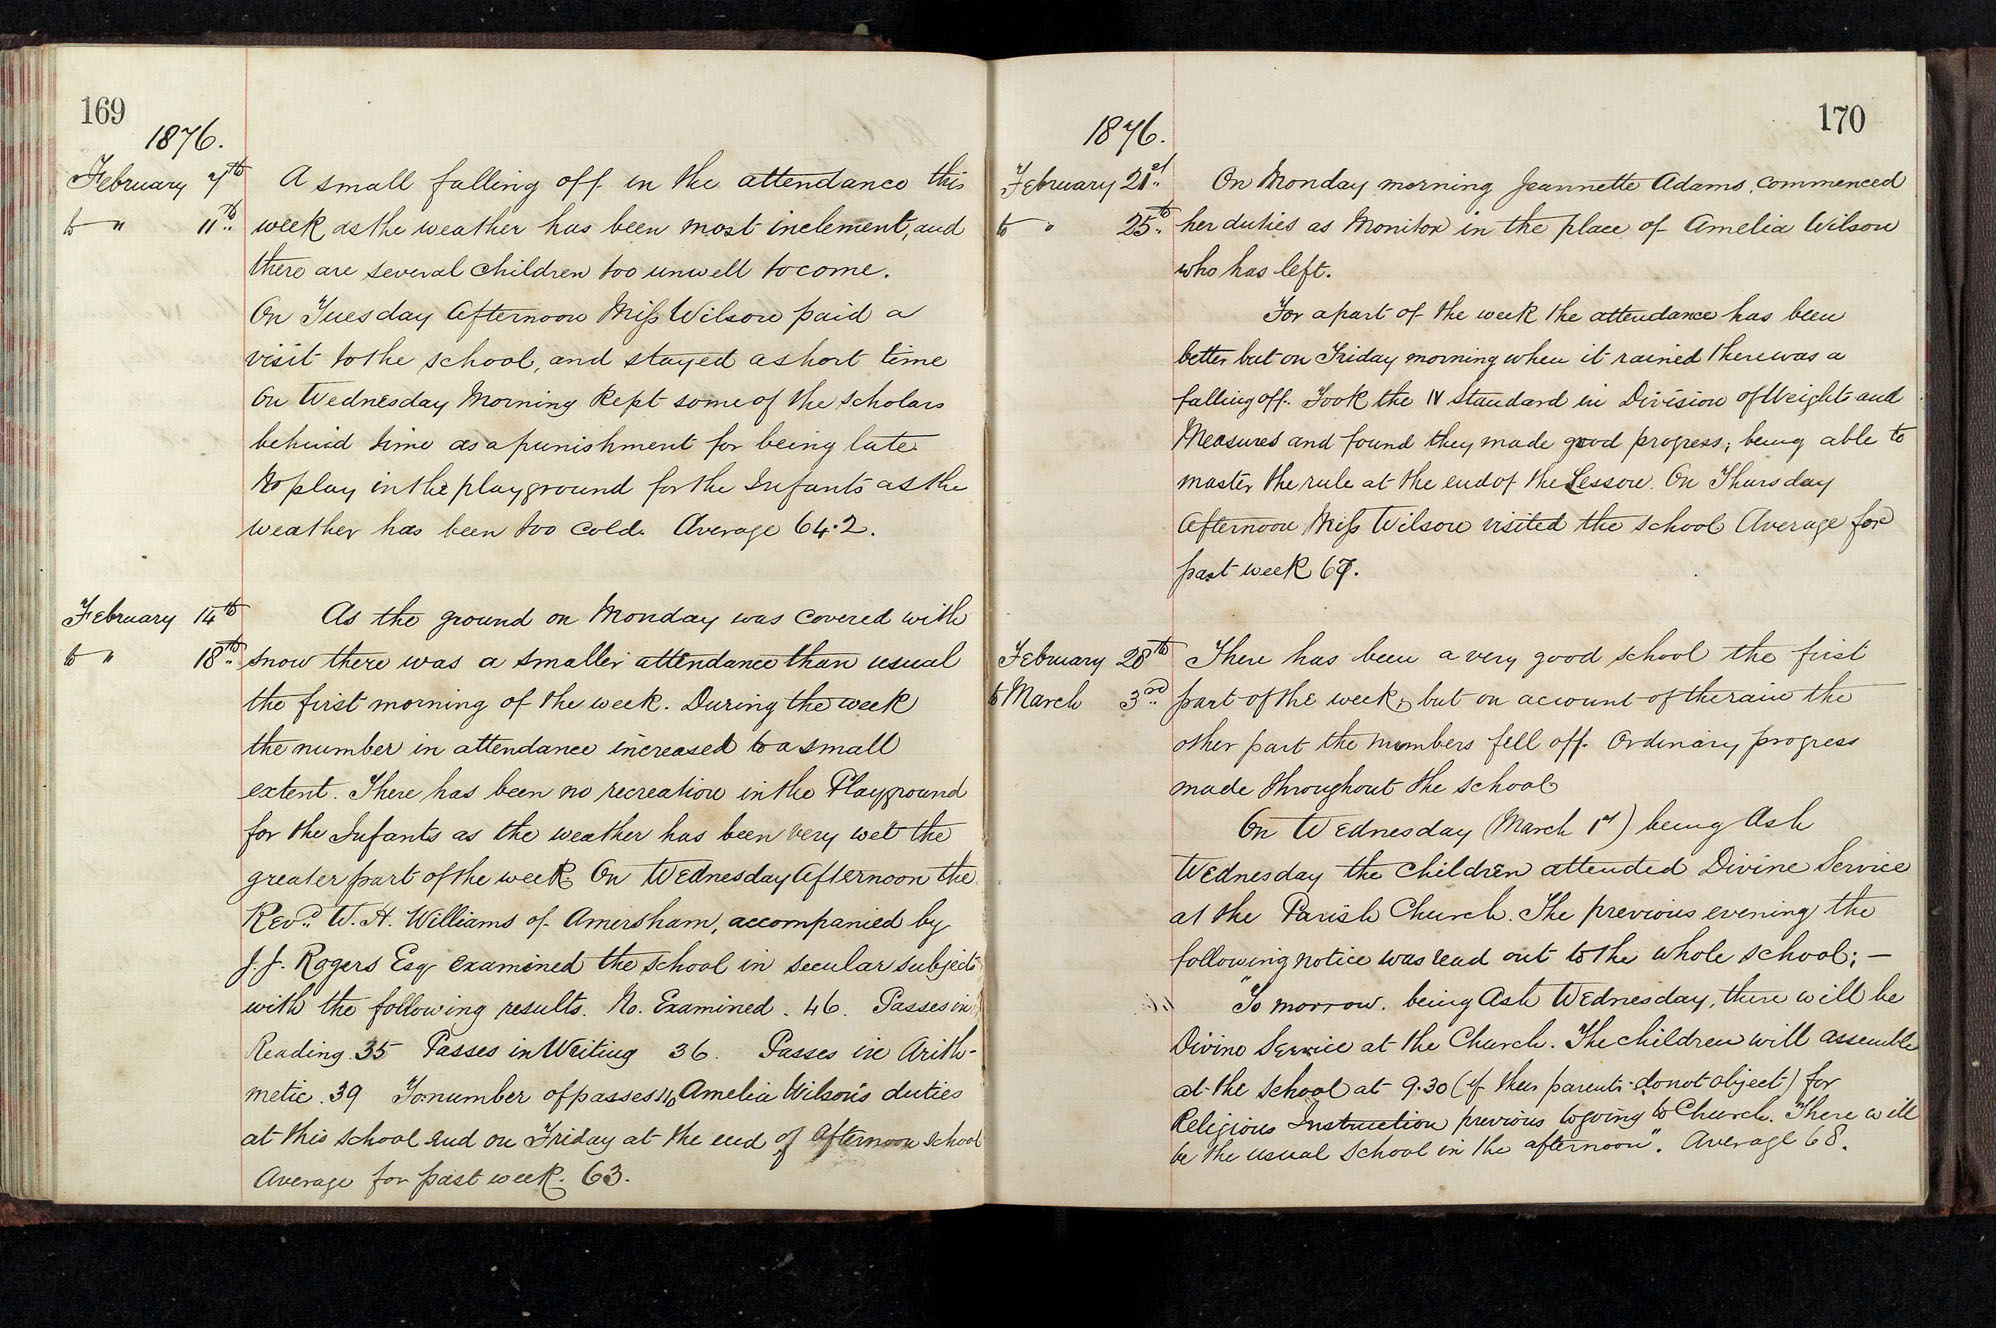 169
1876.
February 7th A small falling off in the attendance this
to " 11th week as the weather has been most inclement, and
there are several children too unwell to come.
On Tuesday Afternoon Miss Wilson paid a
visit to the school, and stayed a short time
On Wednesday Morning kept some of the scholars
behind time as a punishment for being late.
No play in the playground for the Infants as the
weather has been too cold. Average 64.2.
February 14th As the ground on Monday was covered with
to " 18th snow there was a smaller attendance than usual
the first morning of the week. During the week
the number in attendance increased to a small
extent. There has been no recreation in the Playground
for the Infants as the weather has been very wet the
greater part of the week. On Wednesday Afternoon the
Revd. W. H. Williams of Amersham, accompanied by
J. J. Rogers Esq examined the school in secular subjects
with the following results. No. Examined . 46. Passes in
Reading . 35 Passes in Writing 36. Passes in Arith-
metic . 39 To. number of passes 110 Amelia Wilson's duties
at this school end on Friday at the end of afternoon school
Average for past week. 63.
170
1876.
February 21st On Monday morning Jeannette Adams, commenced
to " 25th her duties as Monitor in the place of Amelia Wilson
who has left.
For a part of the week the attendance has been
better but on Friday morning when it rained there was a
falling off. Took the IV Standard in Division of Weights and
Measures and found they made good progress; being able to
master the rule at the end of the Lesson. On Thursday
Afternoon Miss Wilson visited the school Average for
past week 67.
February 28th There has been a very good school the first
to March 3rd part of the week, but on account of the rain the
other part the numbers fell off. Ordinary progress
made throughout the school
On Wednesday (March 1st) being Ash
Wednesday the children attended Divine Service
at the Parish Church. The previous evening the
following notice was read out to the whole school; —
"To morrow. being Ash Wednesday, there will be
Divine Service at the Church. The children will assemble
at the school at 9.30 (if their parents do not object) for
Religious Instruction previous to going to Church. There will
be the usual school in the afternoon". Average 68.